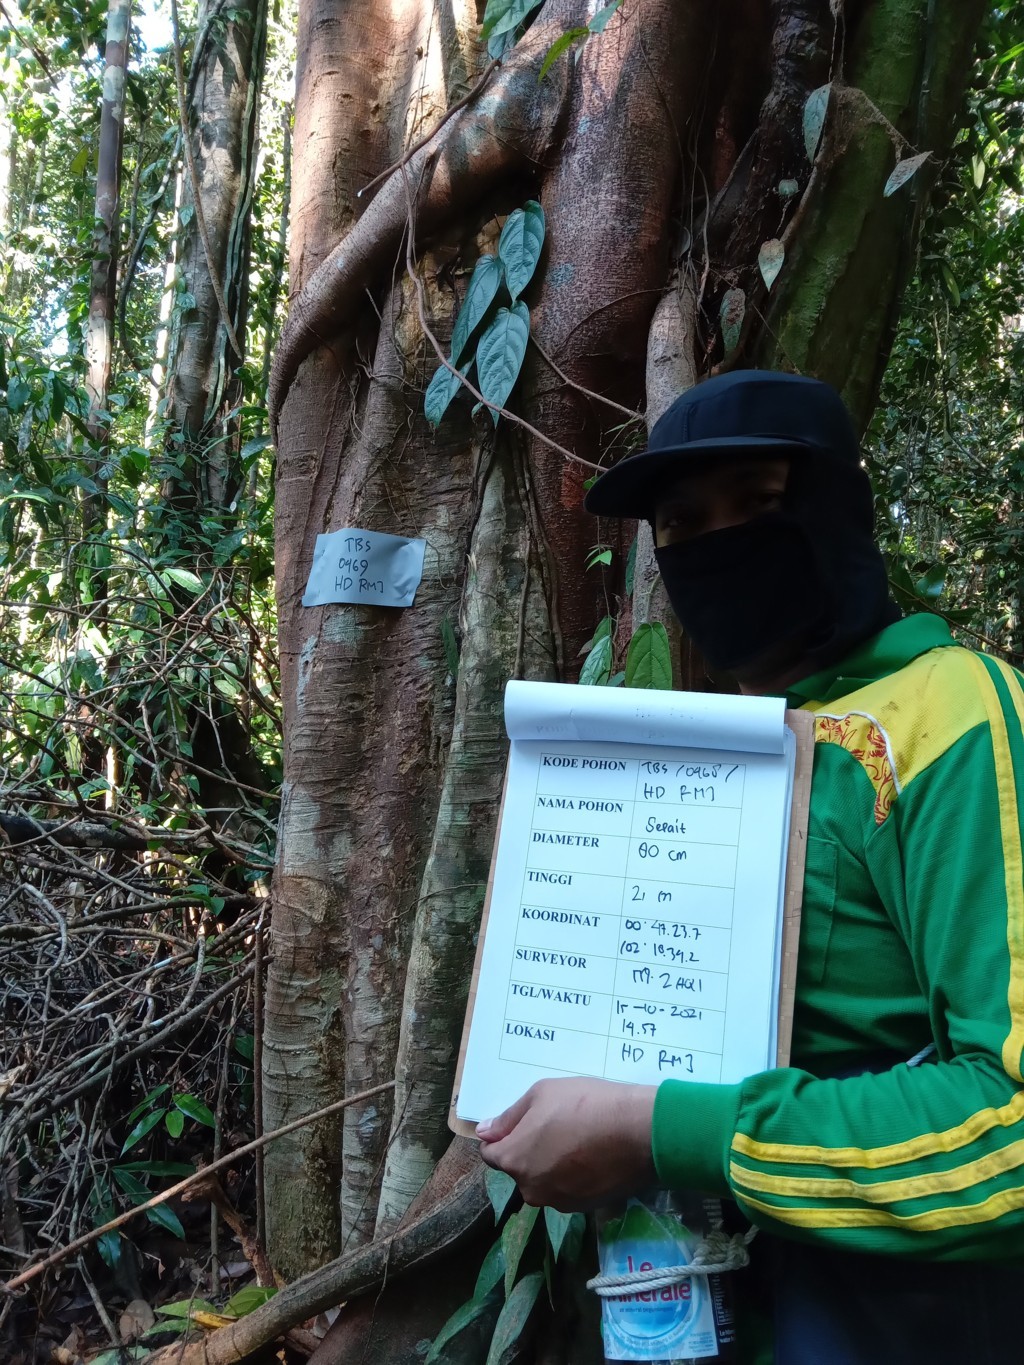 TBS
0469
HD RMJ
KODE POHON TBS / 0468 /
HD RMJ
NAMA POHON Serait
DIAMETER 80 cm
TINGGI 21 m
KOORDINAT 00° 47.23.7
102° 18.34.2
SURVEYOR M. ZAQI
TGL/WAKTU 15-10-2021
14.57
LOKASI HD RMJ
Le
Minerale